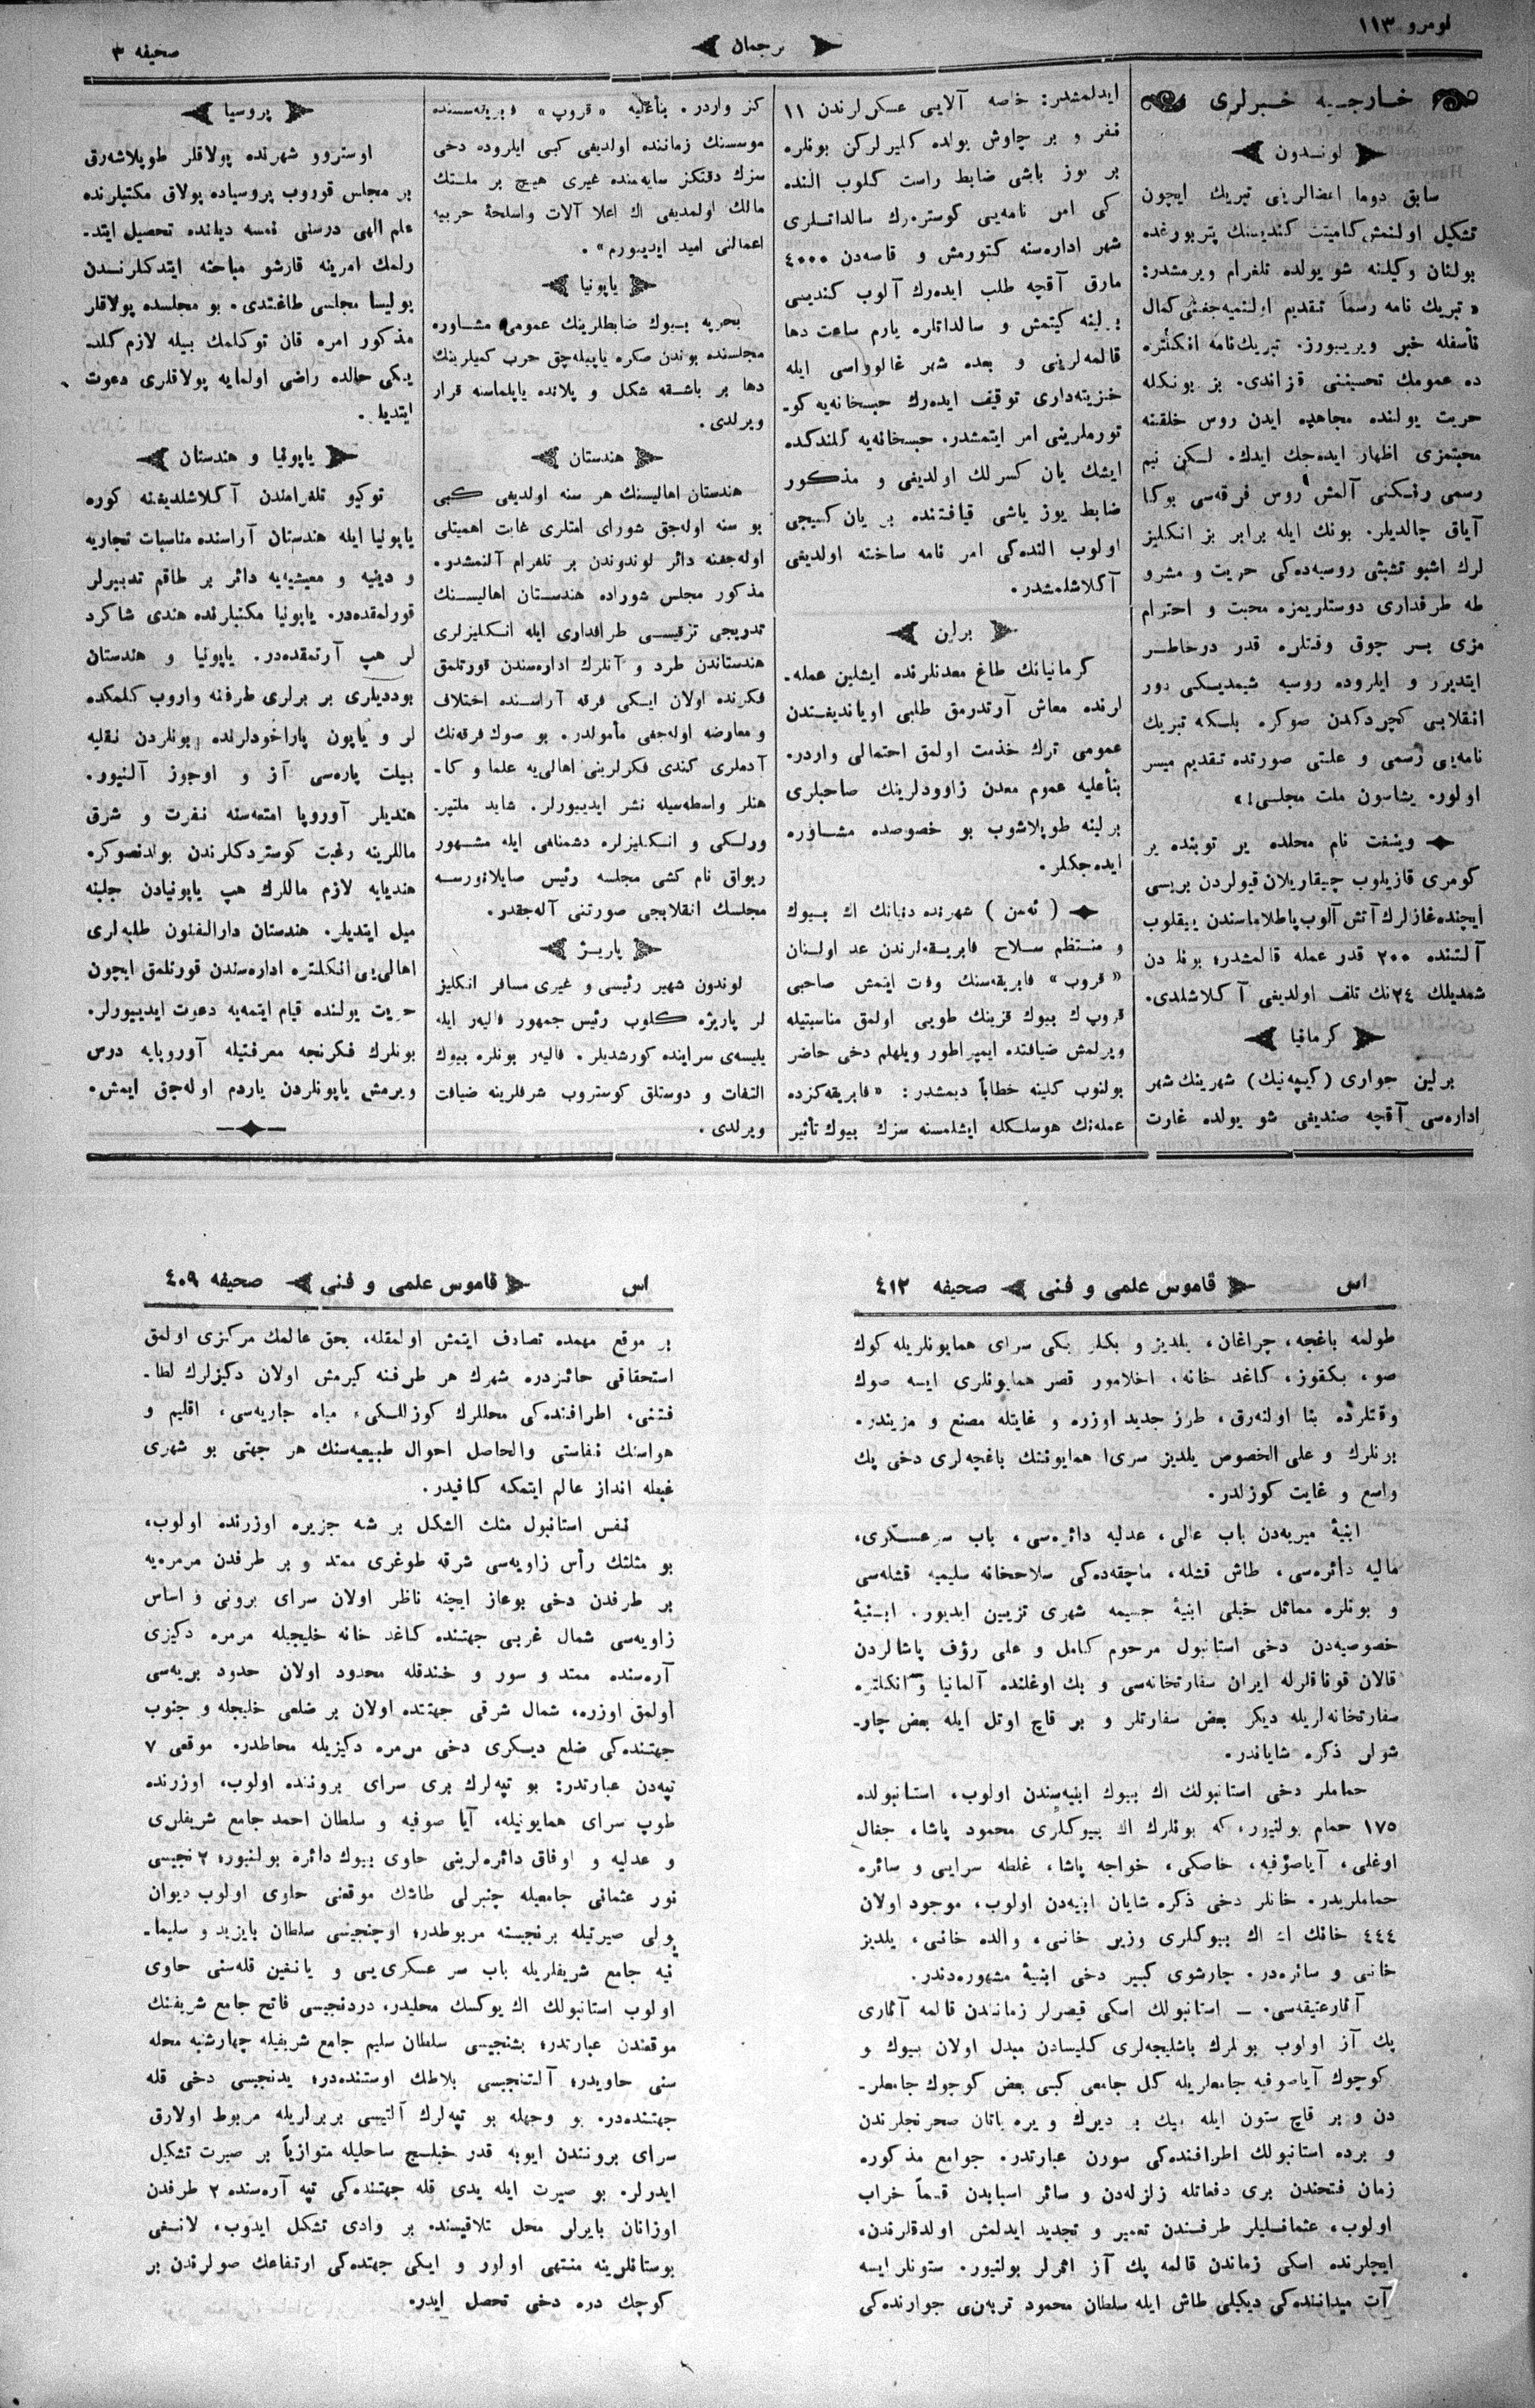 نومرو ١١٣
ترجمان
صحيفه ٣
خارجيه خبرلرى
لوندون
سابق دوما اعضالرينى تبريك ايچون
تشكيل اولنمش كاميتت كنديسنك پتربورغده
بولنان وكيلنه شو يولده تلغرام ويرمشدر:
« تبريك نامه رسماً تقديم اولنميه جغنى كمال
تأسفله خبر ويريبورز. تبريك نامه انكلتره
ده عمومك تحسيننى قزاندى. بز بونكله
حريت يولنده مجاهده ايدن روس خلقنه
محبتمزى اظهار ايده جك ايدك. لكن نيم
رسمى رنكنى آلمش روس فرقه سى بوكا
آياق چالديلر. بونك ايله برابر بز انكليز
لرك اشبو تشبثى روسيه ده كى حريت و مشرو
طه طرفدارى دوستلريمزه محبت و احترام
مزى بر چوق وقتلره قدر درخاطر
ايتديرر و ايلروده روسيه شيمديكى دور
انقلابى كچردكدن صوكره بلكه تبريك
نامه يى رسمى و علنى صورتده تقديم ميسر
اولور. يشاسون ملت مجلسى! »
وينغت نام محلده ير توبنده ير
كومرى قازيلوب چيقاريلان قيولردن بريسى
ايچنده غازلرك آتش آلوب پاطلاماسندن ييقلوب
آلتنده ٢٠٠ قدر عمله قالمشدر؛ بونلردن
شمديلك ٢٤نك تلف اولديغى آكلاشلدى.
كرمانيا
برلين جوارى (كيپه نيك) شهرينك شهر
اداره سى آقچه صنديغى شو يولده غارت
ايدلمشدر: خاصه آلايى عسكرلرندن ١١
نفر و بر چاوش يولده كليرلركن بونلره
بر يوز باشى ضابط راست كلوب النده
كى امر نامه يى كوستره رك سالداتلرى
شهر اداره سنه كتورمش و قاسه دن ٤٠٠٠
مارق آقچه طلب ايده رك آلوب كنديسى
برلينه كيتمش و سالداتلره يارم ساعت دها
قالمه لرينى و بعده شهر غالوواسى ايله
خزينه دارى توقيف ايده رك حبسخانه يه كو-
تورملرينى امر ايتمشدر. حبسخانه يه كلندكده
ايشك يان كسرلك اولديغى و مذكور
ضابط يوز باشى قيافتنده بر يان كسيجى
اولوب النده كى امر نامه ساخته اولديغى
آكلاشلمشدر.
برلين
كرمانيانك طاغ معدنلرنده ايشلين عمله-
لرنده معاش آرتدرمق طلبى اوياندیغندن
عمومى ترك خذمت اولمق احتمالى واردر.
بنأعليه عموم معدن زاوودلرينك صاحبلرى
برلينه طوپلاشوب بو خصوصده مشاوره
ايده جكلر.
( ئه سن ) شهرنده دنيانك اك بيوك
و منتظم سلاح فابريقه لرندن عد اولنان
« قروپ » فابريقه سنك وفات ايتمش صاحبى
قروپ ك بيوك قزينك طويى اولمق مناسبتيله
ويرلمش ضيافتده ايمپراطور ويلهلم دخى حاضر
بولنوب كلينه خطاباً ديمشدر: « فابريقه كزده
عمله نك هوسلكله ايشلمسنه سزك بيوك تأثير
كز واردر. بنأعليه « قروپ » فابريقه سنده
موسسنك زماننده اولديغى كبى ايلروده دخى
سزك دقتكز سايه سنده غيرى هيچ بر ملتك
مالك اولمديغى اك اعلا آلات واسلحهٔ حربيه
اعمالنى اميد ايديبورم».
ياپونيا
بحريه بيوك ضابطلرينك عمومى مشاوره
مجلسنده بوندن صكره ياپيله چق حرب كميلرينك
دها بر باشقه شكل و پلانده ياپلماسنه قرار
ويرلدى.
هندستان
هندستان اهاليسنك هر سنه اولديغى كبى
بو سنه اوله جق شوراى امتلرى غايت اهميتلى
اوله جغنه دائر لوندوندن بر تلغرام آلنمشدر.
مذكور مجلس شوراده هندستان اهاليسنك
تدريجى ترقيسى طرافدارى ايله انكليزلرى
هندستاندن طرد و آنلرك اداره سندن قورتلمق
فكرنده اولان ايكى فرقه آراسنده اختلاف
و معارضه اوله جغى مأمولدر. بو صوك فرقه نك
آدملرى كندى فكرلرينى اهالى يه علما و كا-
هنلر واسطه سيله نشر ايديبورلر. شايد ملتپر-
ورلكى و انكليزلره دشمنلغى ايله مشهور
ربواق نام كشى مجلسه رئيس صايلانورسه
مجلسك انقلابجى صورتنى آله جقدر.
پاريژ
لوندون شهير رئيسى و غيرى مسافر انكليز
لر پاريژه كلوب رئيس جمهور فاليه ر ايله
يليسه ى سراينده كورشديلر. فاليه ر بونلره بيوك
التفات و دوستلق كوستروب شرفلرينه ضيافت
ويرلدى.
پروسيا
اوستروو شهرنده پولاقلر طوپلاشه رق
بر مجلس قوروب پروسياده پولاق مكتبلرنده
علم الهى درسنى نمسه ديلنده تحصيل ايتد-
رلمك امرينه قارشو مباحثه ايتدكلرندن
پوليسا مجلسى طاغتدى. بو مجلسده پولاقلر
مذكور امره قان توكلمك بيله لازم كلد
يكى حالده راضى اولمايه پولاقلرى دعوت
ايتديلر.
ياپونيا و هندستان
توكيو تلغرامندن آكلاشلديغنه كوره
ياپونيا ايله هندستان آراسنده مناسبات تجاريه
و دينيه و معيشيه يه دائر بر طاقم تدبيرلر
قورلمقده در. ياپونيا مكتبلرنده هندى شاكرد
لر هپ آرتمقده در. ياپونيا و هندستان
بودديلرى بر برلرى طرفنه واروب كلمكده
لر و ياپون پاراخودلرنده بونلردن نقليه
بيلت پاره سى آز و اوجوز آلنيور.
هنديلر آوروپا امتعه سنه نفرت و شرق
ماللرينه رغبت كوستردكلرندن بولدنصوكره
هنديايه لازم ماللرك هپ ياپونيادن جلبنه
ميل ايتديلر. هندستان دارالفنون طلبه لرى
اهالى يى انكلتره اداره سندن قورتلمق ايچون
حريت يولنده قيام ايتمه يه دعوت ايديبورلر.
بونلرك فكرنجه معرفتيله آوروپايه درس
ويرمش ياپونلردن ياردم اوله جق ايمش.
اس
قاموس علمى و فنى
صحيفه ٤١٢
طولمه باغچه، چراغان، يلديز و بكلر بكى سراى همايونلريله كوك
صو، بكقوز، كاغد خانه، اخلامور قصر همايونلرى ايسه صوك
وقتلرده بنا اولنه رق، طرز جديد اوزره و غايتله مصنع و مزيندر.
برنلرك و على الخصوص يلديز سراى همايوننك باغچه لرى دخى پك
واسع و غايت كوزلدر.
ابنيهٔ ميريه دن باب عالى، عدليه دائره سى، باب سر عسكرى،
ماليه دائره سى، طاش قشله، ماچقه ده كى سلاحخانه سليميه قشله سى
و بونلره مماثل خيلى ابنيهٔ جسيمه شهرى تزيين ايديور. ابنيهٔ
خصوصيه دن دخى استانبول مرحوم كامل و على رؤف پاشالردن
قالان قوناقلرله ايران سفارتخانه سى و بك اوغلنده آلمانيا و انكلتره
سفارتخانه لريله ديكر بعض سفارتلر و بر قاچ اوتل ايله بعض چار-
شولر ذكره شاياندر.
حماملر دخى استانبولك اك بيوك ابنيه سندن اولوب، استانبولده
١٧٥ حمام بولنيور، كه بونلرك اك بيوكلرى محمود پاشا، جغال
اوغلى، آياصوفيه، خاصكى، خواجه پاشا، غلطه سرايى و سائره
حماملريدر. خانلر دخى ذكره شايان ابنيه دن اولوب، موجود اولان
٤٤٤ خانك اك بيوكلرى وزير خانى، والده خانى، يلديز
خانى و سائره در. چارشوى كبير دخى ابنيهٔ مشهوره دندر.
آثارعتيقه سى. — استانبولك اسكى قيصرلر زماندن قالمه آثارى
پك آز اولوب بونلرك باشليجه لرى كليسادن مبدل اولان بيوك و
كوچوك آياصوفيه جامعلريله كل جامعى كبى بعض كوچوك جامعلر-
دن و بر قاچ ستون ايله بيك بر ديرك و يره باتان صحرنجلرندن
و برده استانبولك اطرافنده كى سورن عبارتدر. جوامع مذكوره
زمان فتحندن برى دفعاتله زلزله دن و سائر اسبابدن قسماً خراب
اولوب، عثمانليلر طرفندن تعمير و تجديد ايدلمش اولدقلرندن،
ايچلرنده اسكى زماندن قالمه پك آز اثرلر بولنيور. ستونلر ايسه
آت ميداننده كى ديكيلى طاش ايله سلطان محمود تربه سى جوارنده كى
اس
قاموس علمى و فنى
صحيفه ٤٠٩
بر موقع مهمده تصادف ايتمش اولمقله، بحق عالمك مركزى اولمق
استحقاقى حائزدر، شهرك هر طرفنه كيرمش اولان دكيزلرك لطا-
فتنى، اطرافنده كى محللرك كوزللكى، مياه جاريه سى، اقليم و
هواسنك نفاستى والحاصل احوال طبيعيه سنك هر جهتى بو شهرى
غبطه انداز عالم ايتمكه كافيدر.
نفس استانبول مثلث الشكل بر شبه جزيره اوزرنده اولوب،
بو مثلثك رأس زاويه سى شرقه طوغرى ممتد و بر طرفدن مرمره يه
بر طرفدن دخى بوغاز ايچنه ناظر اولان سراى برونى و اساس
زاويه سى شمال غربى جهتنده كاغد خانه خليجيله مرمره دكيزى
آره سنده ممتد و سور و خندقله محدود اولان حدود بريه سى
اولمق اوزره، شمال شرقى جهتنده اولان بر ضلعى خليجله و جنوب
جهتنده كى ضلع ديكرى دخى مرمره دكيزيله محاطدر. موقعى ٧
تپه دن عبارتدر: بو تپه لرك برى سراى بروننده اولوب، اوزرنده
طوپ سراى همايونيله، آيا صوفيه و سلطان احمد جامع شريفلرى
و عدليه و اوقاف دائره لرينى حاوى بيوك دائره بولنيور؛ ٢ نجيسى
نور عثمانى جامعيله چنبرلى طاشك موقعنى حاوى اولوب ديوان
يولى صيرتيله برنجيسنه مربوطدر؛ اوچنجيسى سلطان بايزيد و سليما-
نيه جامع شريفلريله باب سر عسكرى يى و يانغين قله سنى حاوى
اولوب استانبولك اك يوكسك محليدر، دردنجيسى فاتح جامع شريفنك
موقعندن عبارتدر؛ بشنجيسى سلطان سليم جامع شريفيله چهارشنبه محله
سنى حاويدر؛ آلتنجيسى بلاطك اوستنده در؛ يدنجيسى دخى قله
جهتنده در. بو وجهله بو تپه لرك آلتيسى بربرلريله مربوط اولارق
سراى بروننندن ايوبه قدر خليج ساحليله متوازياً بر صيرت تشكيل
ايدرلر. بو صيرت ايله يدى قله جهتنده كى تپه آره سنده ٢ طرفدن
اوزانان بايرلر محل تلاقيسنده بر وادى تشكل ايدوب، لانغى
بوستانلرينه منتهى اولور و ايكى جهتده كى ارتفاعك صولرندن بر
كوچك دره دخى تحصل ايدر.